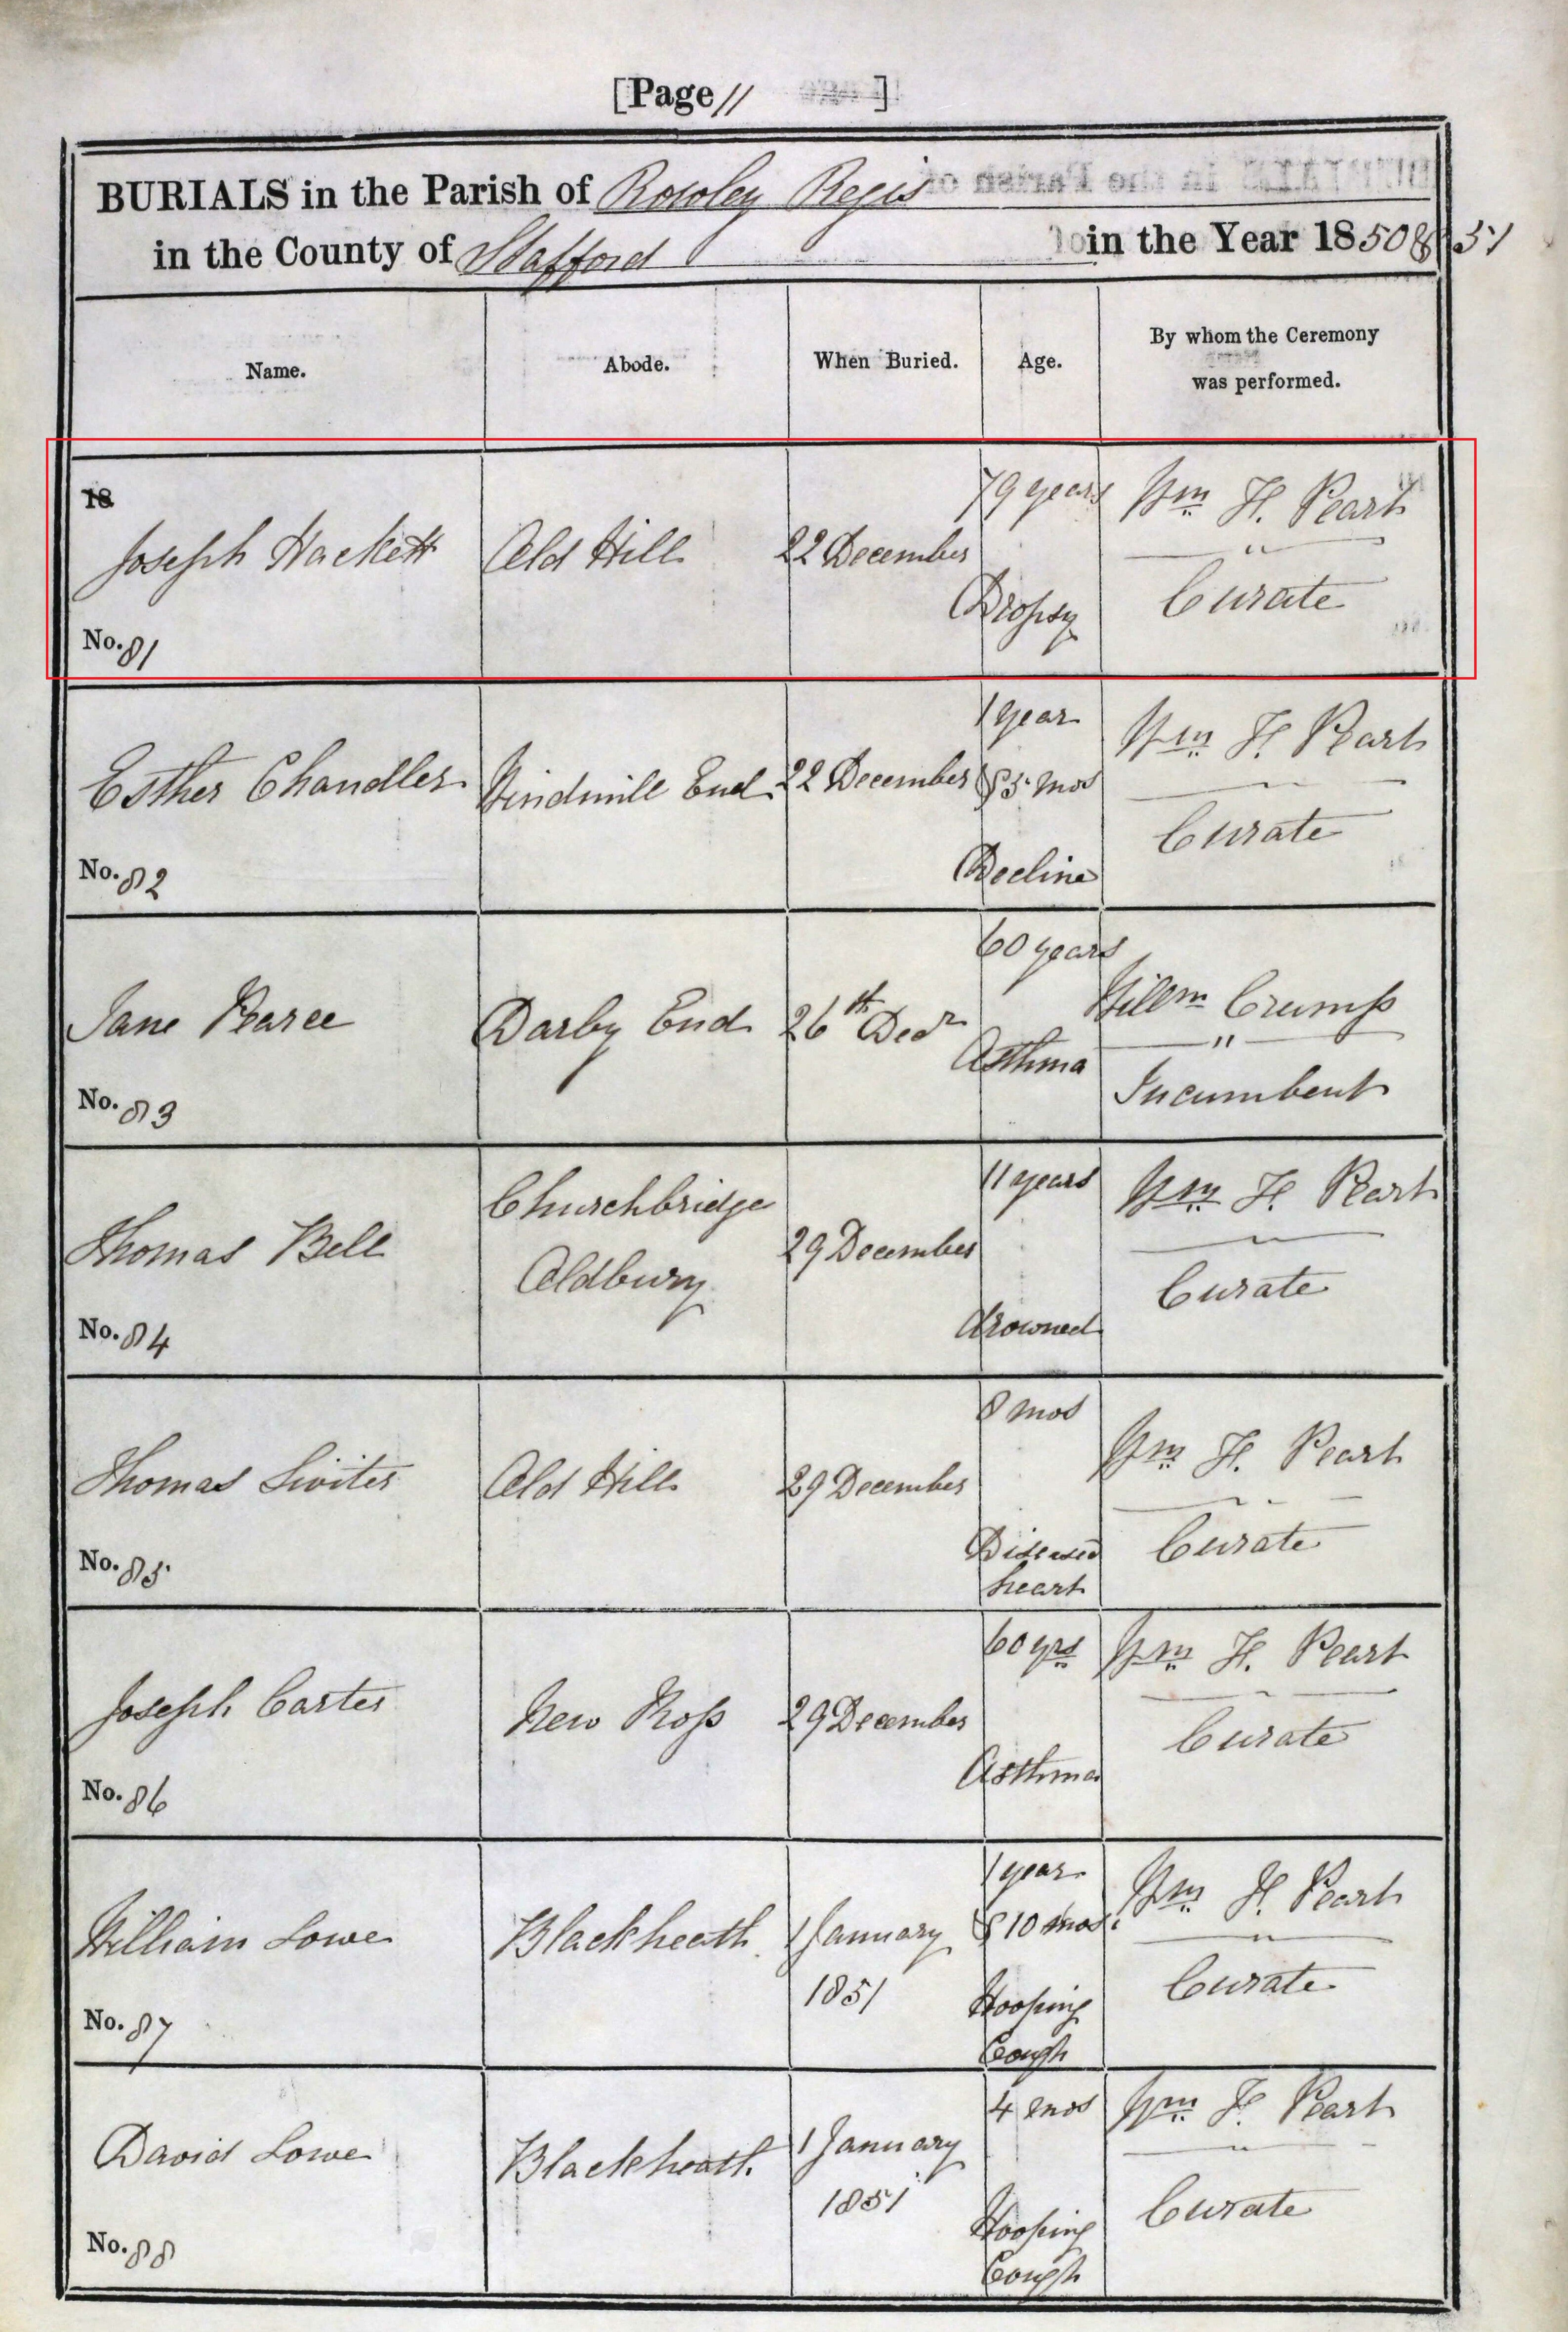 [Page 11 ]
BURIALS in the Parish of Rowley Regis
in the County of Stafford in the Year 1850 & 51
Name. Abode. When Buried. Age. By whom the Ceremony was performed.
18
Joseph Hackett Old Hill 22 December 79 years Dropsy Wm H. Peart Curate
No. 81
Esther Chandler Windmill End 22 December 1 year & 5 mos Decline Wm H. Peart Curate
No. 82
Jane Pearce Darby End 26th Decr 60 years Asthma Willm Crump Incumbent
No. 83
Thomas Bell Churchbridge Oldbury 29 December 11 years drowned Wm H. Peart Curate
No. 84
Thomas Siviter Old Hill 29 December 8 mos Diseased heart Wm H. Peart Curate
No. 85
Joseph Carter New Ross 29 December 60 yrs Asthma Wm H. Peart Curate
No. 86
William Lowe Blackheath 1 January 1851 1 year & 10 mos. Hooping Cough Wm H. Peart Curate
No. 87
David Lowe Blackheath 1 January 1851 4 mos Hooping Cough Wm H. Peart Curate
No. 88